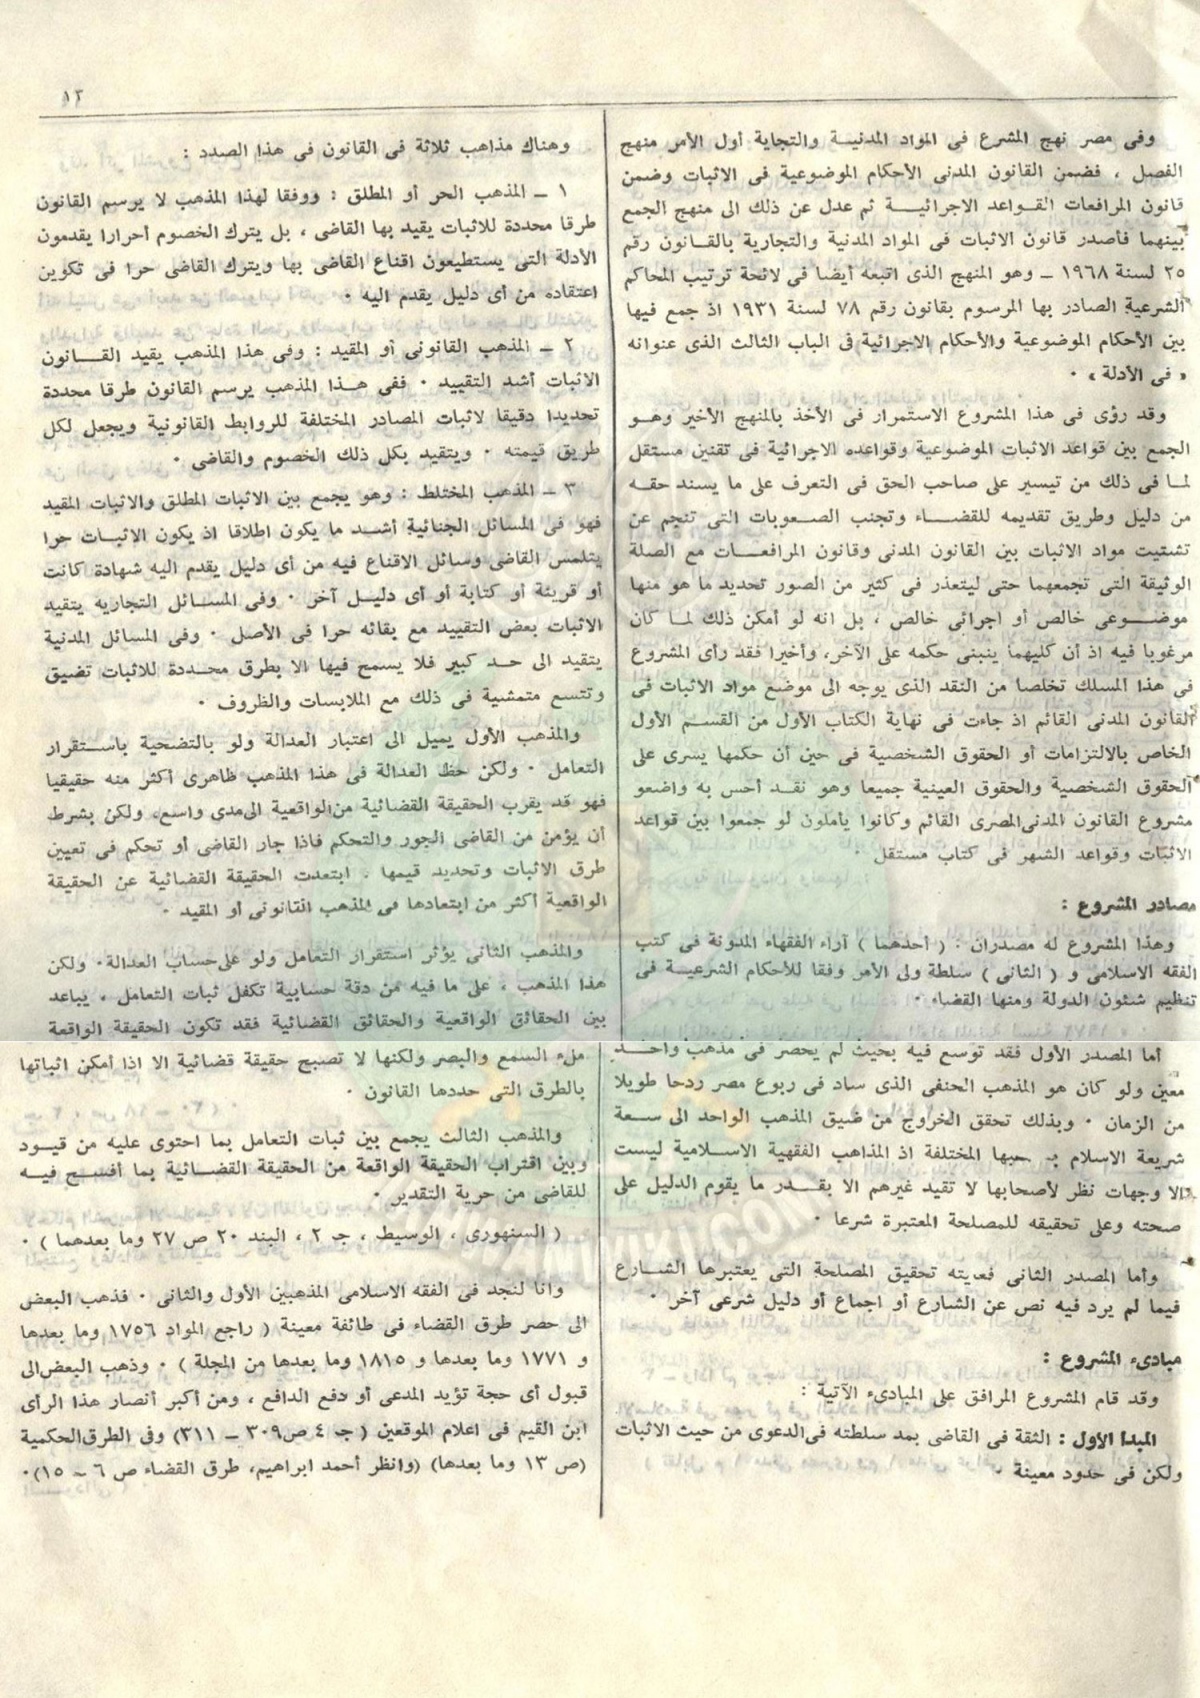 ١٣
وفى مصر نهج المشرع فى المواد المدنيــة والتجاية أول الأمر منهج
الفصل ، فضمن القانون المدنى الأحكام الموضوعية فى الاثبات وضمن
قانون المرافعات القــواعد الاجرائيــــة ثم عدل عن ذلك الى منهج الجمع
بينهما فأصدر قانون الاثبات فى المواد المدنية والتجارية بالقــانون رقم
٢٥ لسنة ١٩٦٨ ــ وهو المنهج الذى اتبعه أيضا فى لائحة ترتيب المحاكم
الشرعية الصادر بها المرسوم بقانون رقم ٧٨ لسنة ١٩٣١ اذ جمع فيها
بين الأحكام الموضوعية والأحكام الاجرائية فى الباب الثالث الذى عنوانه
« فى الأدلة » ٠
وقد رؤى فى هذا المشروع الاستمرار فى الأخذ بالمنهج الأخير وهــو
الجمع بين قواعد الاثبات الموضوعية وقواعده الاجرائية فى تقنين مستقل
لمـا فى ذلك من تيسير على صاحب الحق فى التعرف على ما يسند حقــه
من دليل وطريق تقديمه للقضــــاء وتجنب الصــعوبات التى تنجم عن
تشتيت مواد الاثبات بين القانون المدنى وقانون المرافعـــات مع الصلة
الوثيقة التى تجمعهما حتى ليتعذر فى كثير من الصور تحديد ما هو منها
موضــــوعى خالص أو اجرائى خالص ، بل انه لو أمكن ذلك لمــا كان
مرغوبا فيه اذ أن كليهما ينبنى حكمه على الآخر، وأخيرا فقد رأى المشروع
فى هذا المسلك تخلصا من النقد الذى يوجه الى موضع مواد الاثبات فى
القانون المدنى القائم اذ جاءت فى نهاية الكتاب الأول من القســم الأول
الخاص بالالتزامات أو الحقوق الشخصية فى حين أن حكمها يسرى على
الحقوق الشخصية والحقوق العينية جميعا وهو نقــد أحس به واضعو
مشروع القانون المدنى المصرى القائم وكانوا يأملون لو جمعوا بين قواعد
الاثبات وقواعد الشهر فى كتاب مستقل ٠
مصادر المشروع :
وهذا المشروع له مصدران ٠ ( أحدهما ) آراء الفقهاء المدونة فى كتب
الفقه الاسلامى و ( الثانى ) سلطة ولى الأمر وفقا للأحكام الشرعيــة فى
تنظيم شئون الدولة ومنها القضاء ٠
أما المصدر الأول فقد توسع فيه بحيث لم يحصر فى مذهب واحــد
معين ولو كان هو المذهب الحنفى الذى ساد فى ربوع مصر ردحا طويلا
من الزمان ٠ وبذلك تحقق الخروج من ضيق المذهب الواحد الى ســعة
شريعة الاسلام المختلفة اذ المذاهب الفقهية الاســلامية ليست
الا وجهات نظر لأصحابها لا تقيد غيرهم الا بقــدر ما يقوم الدليل على
صحته وعلى تحقيقه للمصلحة المعتبرة شرعا ٠
وأما المصدر الثانى فغايته تحقيق المصلحة التى يعتبرها الشــارع
فيما لم يرد فيه نص عن الشارع أو اجماع أو دليل شرعى آخر ٠
مبادىء المشروع :
وقد قام المشروع المرافق على المبادىء الآتية :
المبدأ الأول : الثقة فى القاضى بمد سلطته فى الدعوى من حيث الاثبات
ولكن فى حدود معينة ٠
وهناك مذاهب ثلاثة فى القانون فى هذا الصدد :
١ ــ المذهب الحر أو المطلق : ووفقا لهذا المذهب لا يرسم القانون
طرقا محددة للاثبات يقيد بها القاضى ، بل يترك الخصوم أحرارا يقدمون
الأدلة التى يستطيعون اقناع القاضى بها ويترك القاضى حرا فى تكوين
اعتقاده من أى دليل يقدم اليه ٠
٢ ــ المذهب القانونى أو المقيد : وفى هذا المذهب يقيد القــــانون
الاثبات أشد التقييد ٠ ففى هــذا المذهب يرسم القانون طرقا محددة
تحديدا دقيقا لاثبات المصادر المختلفة للروابط القانونية ويجعل لكل
طريق قيمته ٠ ويتقيد بكل ذلك الخصوم والقاضى ٠
٣ ــ المذهب المختلط : وهو يجمع بين الاثبات المطلق والاثبات المقيد
فهو فى المسائل الجنائية أشــد ما يكون اطلاقا اذ يكون الاثبــات حرا
يتلمس القاضى وسائل الاقناع فيه من أى دليل يقدم اليه شهادة كانت
أو قرينة أو كتابة أو أى دليــل آخر ٠ وفى المســائل التجاريه يتقيد
الاثبات بعض التقييد مع بقائه حرا فى الأصل ٠ وفى المسائل المدنية
يتقيد الى حــد كبير فلا يسمح فيها الا بطرق محــددة للاثبات تضيق
وتتسع متمشية فى ذلك مع الملابسات والظروف ٠
والمذهب الأول يميل الى اعتبار العدالة ولو بالتضحية باســتقرار
التعامل ٠ ولكن حظ العدالة فى هذا المذهب ظاهرى أكثر منه حقيقيا
فهو قد يقرب الحقيقة القضائية من الواقعية الى مدى واسع، ولكن بشرط
أن يؤمن من القاضى الجور والتحكم فاذا جار القاضى أو تحكم فى تعيين
طرق الاثبات وتحديد قيمها ، ابتعدت الحقيقة القضائية عن الحقيقة
الواقعية أكثر من ابتعادها فى المذهب القانونى أو المقيد ٠
والمذهب الثانى يؤثر استقرار التعامل ولو على حساب العدالة٠ ولكن
هذا المذهب ، على ما فيه من دقة حسابية تكفل ثبات التعامل ، يباعد
بين الحقائق الواقعية والحقائق القضائية فقد تكون الحقيقة الواقعة
ملء السمع والبصر ولكنها لا تصبح حقيقة قضائية الا اذا أمكن اثباتها
بالطرق التى حددها القانون ٠
والمذهب الثالث يجمع بين ثبات التعامل بما احتوى عليه من قيــود
وبين اقتراب الحقيقة الواقعة من الحقيقة القضــائية بما أفســح فيــه
للقاضى من حرية التقدير ٠
( السنهورى ، الوسيط ، جـ ٢ ، البند ٢٠ ص ٢٧ وما بعدهما ) ٠
وانا لنجد فى الفقه الاسلامى المذهبين الأول والثانى ٠ فذهب البعض
الى حصر طرق القضاء فى طائفة معينة ( راجع المواد ١٧٥٦ وما بعدها
و ١٧٧١ وما بعدها و ١٨١٥ وما بعدها من المجلة ) ٠ وذهب البعض الى
قبول أى حجة تؤيد المدعى أو دفع الدافع ، ومن أكبر أنصار هذا الرأى
ابن القيم فى اعلام الموقعين ( جـ ٤ ص ٣٠٩ ــ ٣١١) وفى الطرق الحكمية
(ص ١٣ وما بعدها) (وانظر أحمد ابراهيم، طرق القضاء ص ٦ ــ ١٥)٠